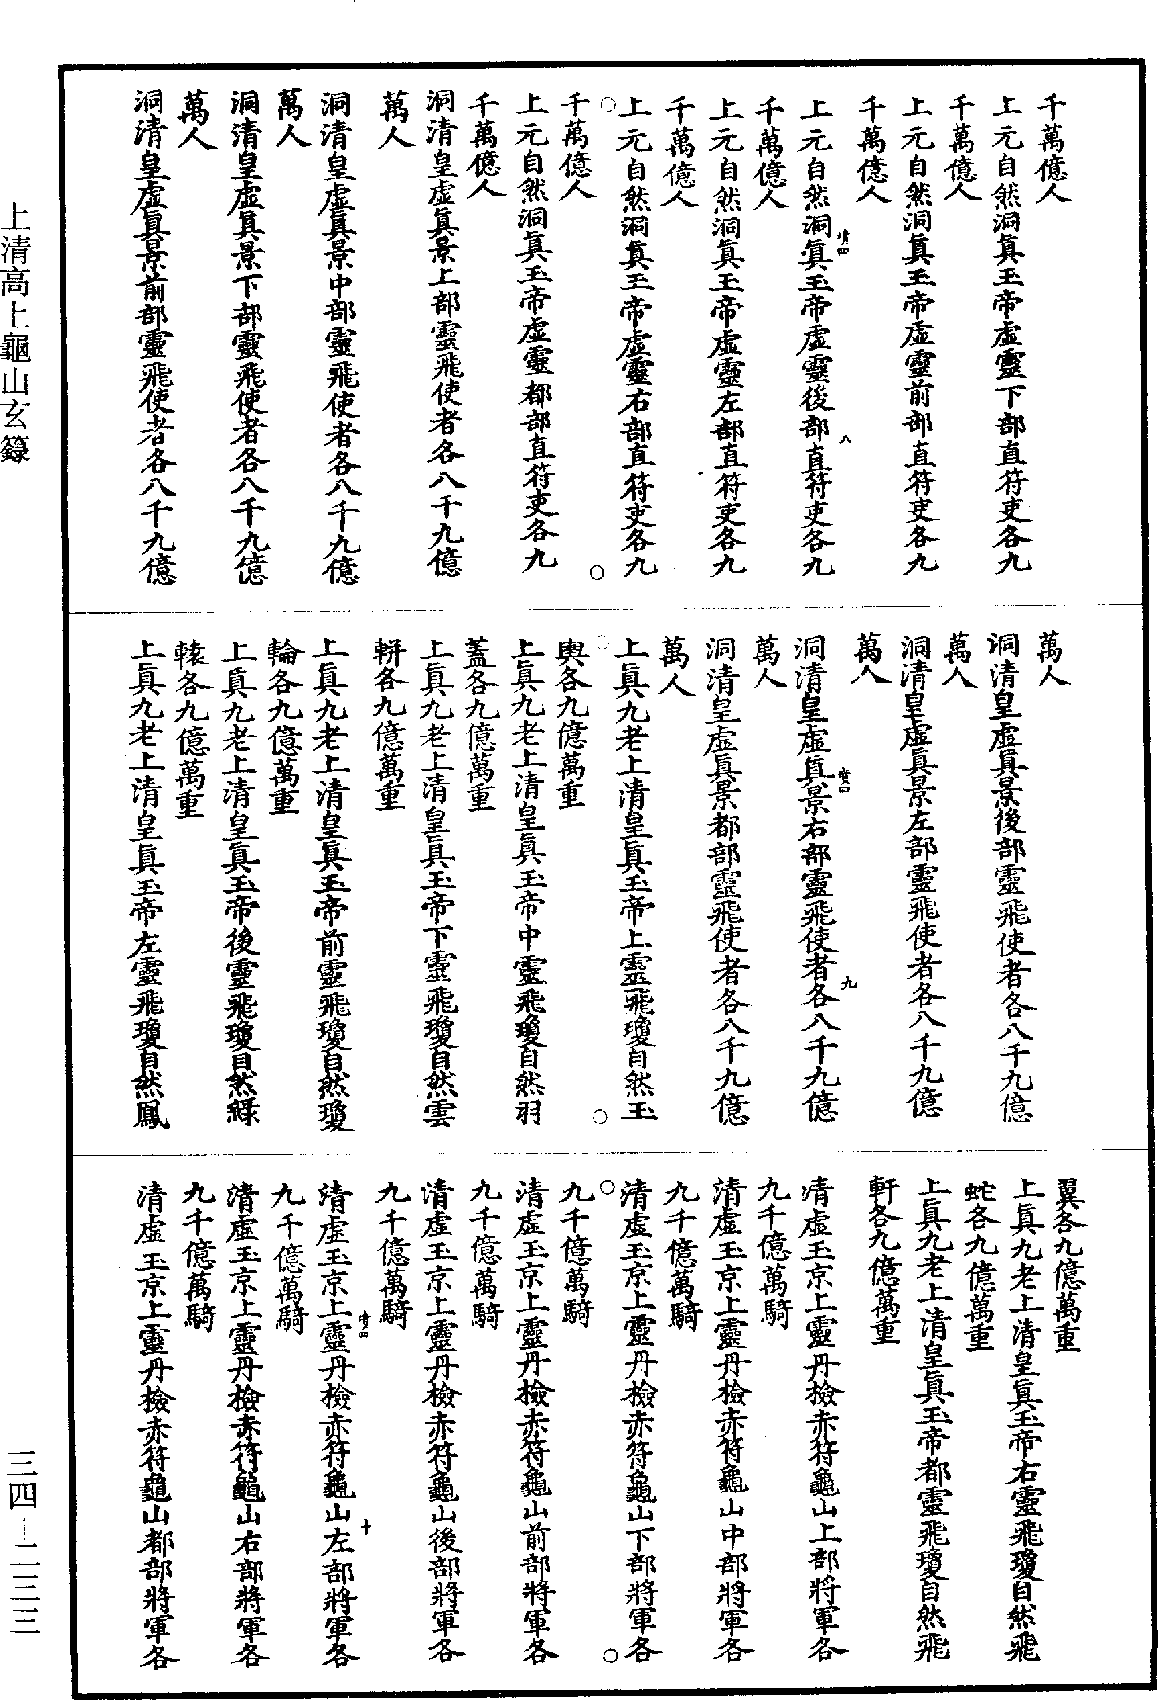 千萬億人
上元自然洞真玉帝虛靈下部直符吏各九
千萬億人
上元自然洞真玉帝虛靈前部直符吏各九
千萬億人
上元自然洞真玉帝虛靈後部直符吏各九
千萬億人
上元自然洞真玉帝虛靈左部直符吏各九
千萬億人
上元自然洞真玉帝虛靈右部直符吏各九
千萬億人
上元自然洞真玉帝虛靈都部直符吏各九
千萬億人
洞清皇虛真景上部靈飛使者各八千九億
萬人
洞清皇虛真景中部靈飛使者各八千九億
萬人
洞清皇虛真景下部靈飛使者各八千九億
萬人
洞清皇虛真景前部靈飛使者各八千九億
萬人
洞清皇虛真景後部靈飛使者各八千九億
萬人
洞清皇虛真景左部靈飛使者各八千九億
萬人
洞清皇虛真景右部靈飛使者各八千九億
萬人
洞清皇虛真景都部靈飛使者各八千九億
萬人
上真九老上清皇真玉帝上靈飛瓊自然玉
輿各九億萬重
上真九老上清皇真玉帝中靈飛瓊自然羽
蓋各九億萬重
上真九老上清皇真玉帝下靈飛瓊自然雲
軿各九億萬重
上真九老上清皇真玉帝前靈飛瓊自然瓊
輪各九億萬重
上真九老上清皇真玉帝後靈飛瓊自然綠
轅各九億萬重
上真九老上清皇真玉帝左靈飛瓊自然鳳
翼各九億萬重
上真九老上清皇真玉帝右靈飛瓊自然飛
蛇各九億萬重
上真九老上清皇真玉帝都靈飛瓊自然飛
軒各九億萬重
清虛玉京上靈丹檢赤符龜山上部將軍各
九千億萬騎
清虛玉京上靈丹檢赤符龜山中部將軍各
九千億萬騎
清虛玉京上靈丹檢赤符龜山下部將軍各
九千億萬騎
清虛玉京上靈丹檢赤符龜山前部將軍各
九千億萬騎
清虛玉京上靈丹檢赤符龜山後部將軍各
九千億萬騎
清虛玉京上靈丹檢赤符龜山左部將軍各
九千億萬騎
清虛玉京上靈丹檢赤符龜山右部將軍各
九千億萬騎
清虛玉京上靈丹檢赤符龜山都部將軍各
八
九
十
上清高上龜山玄籙
三四—二三三